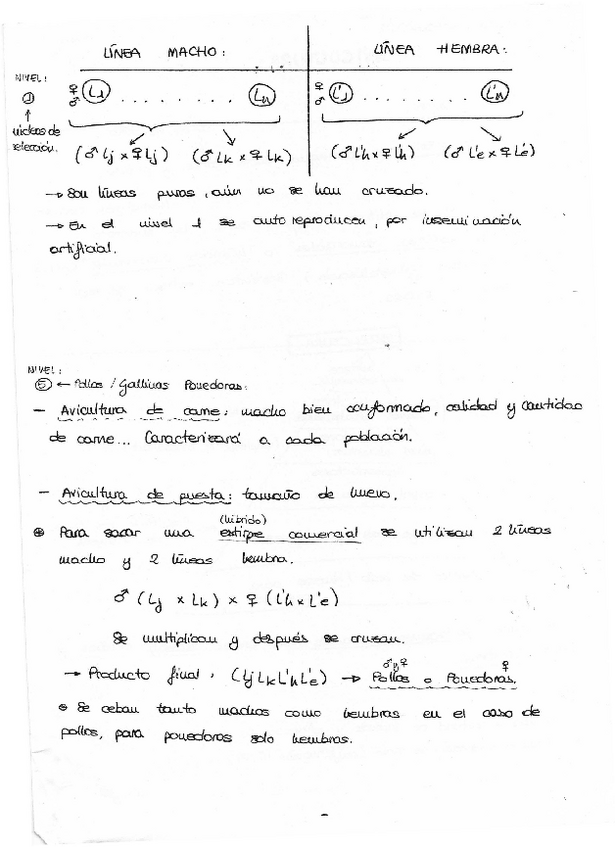 LÍNEA MACHO:
LÍNEA HEMBRA:
NIVEL:
① ♀ ♂ L1 ........ Ln
♀ ♂ L'1 ........ L'n
núcleos de selección.
(♂ Lj x ♀ Lj) (♂ Lk x ♀ Lk)
(♂ L'h x ♀ L'h) (♂ L'e x ♀ L'e)
→ Son líneas puras, aún no se han cruzado.
→ En el nivel 1 se autoreproducen, por inseminación
artificial.
NIVEL:
⑤ ← Pollos / Gallinas Ponedoras:
- Avicultura de carne: macho bien conformado, calidad y cantidad
de carne... Caracterizará a cada población.
- Avicultura de puesta: tamaño de huevo.
(híbrido)
Para sacar una estirpe comercial se utilizan 2 líneas
macho y 2 líneas hembra.
♂ (Lj x Lk) x ♀ (L'h x L'e)
Se multiplican y después se cruzan.
♂ y ♀ ♀
→ Producto final: (Lj Lk L'h L'e) → Pollos o Ponedoras.
Se ceban tanto machos como hembras en el caso de
pollos, para ponedoras solo hembras.